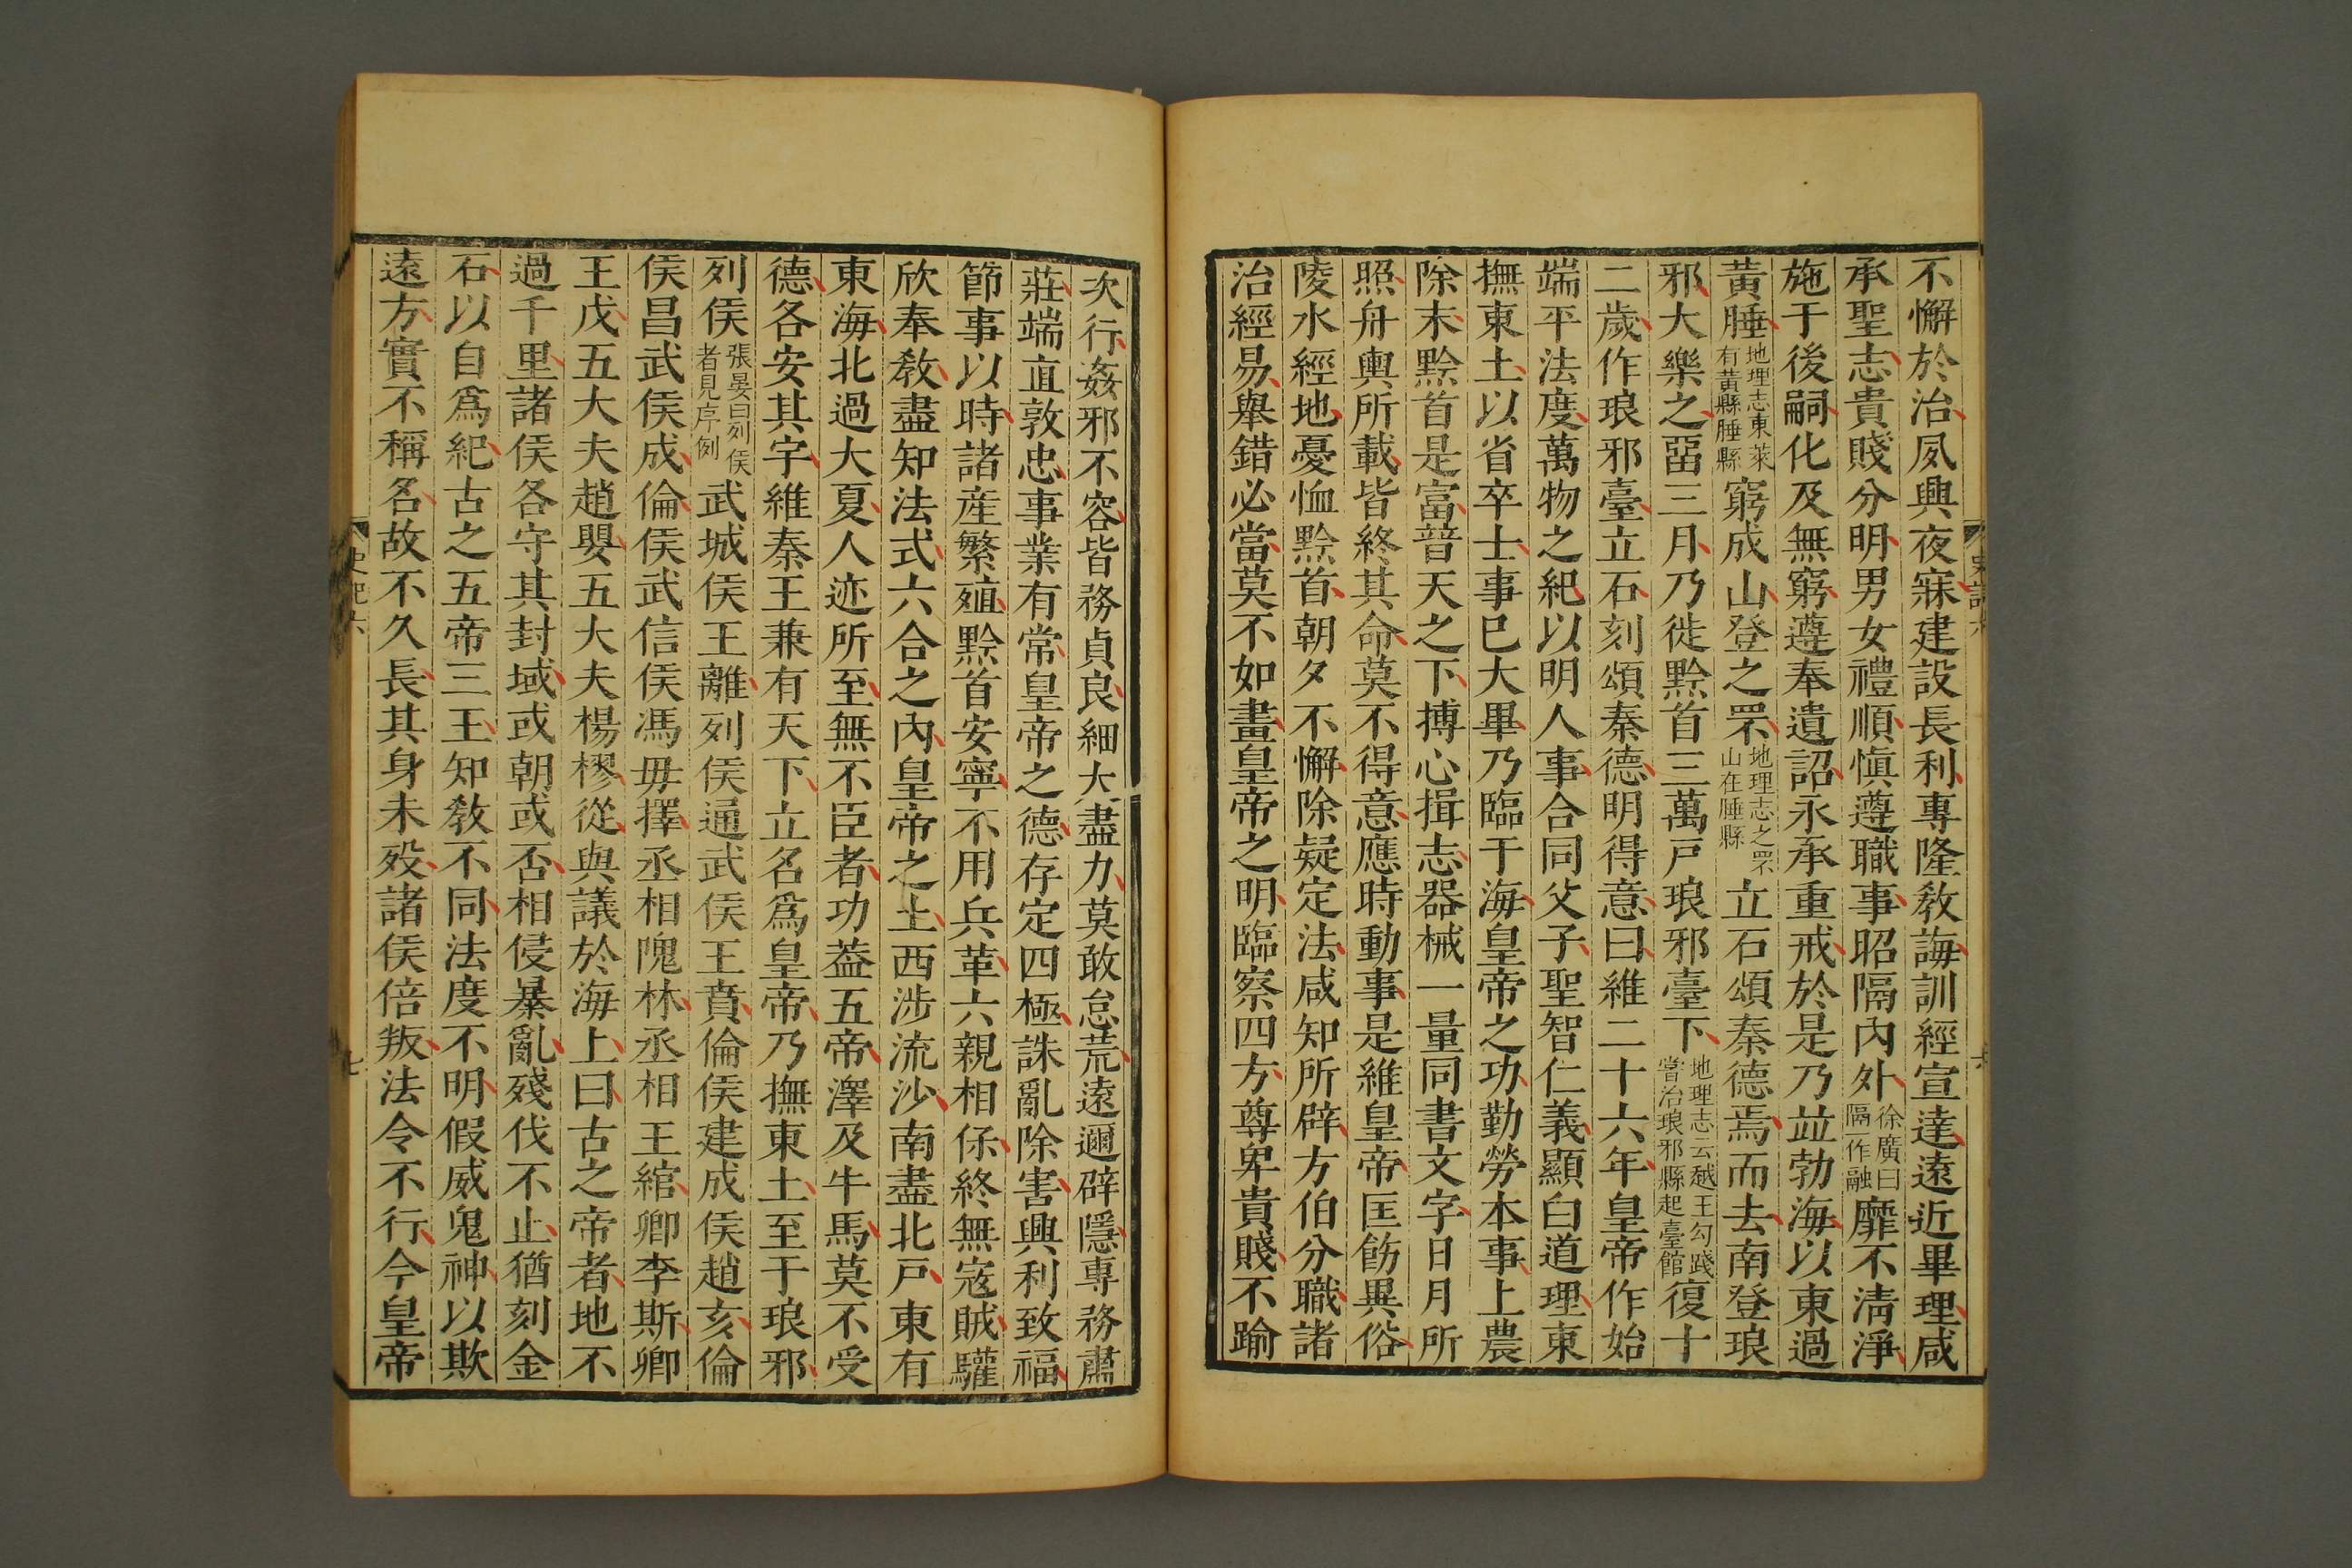 不懈於治夙興夜寐建設長利專隆敎誨訓經宣達遠近畢理咸
承聖志貴賤分明男女禮順愼遵職事昭隔內外徐廣曰隔一作融靡不淸淨
施于後嗣化及無窮遵奉遺詔永承重戒於是乃竝勃海以東過
黃腄地理志東萊有黃縣腄縣窮成山登之罘地理志之罘山在腄縣立石頌秦德焉而去南登琅
邪大樂之畱三月乃徙黔首三萬戸琅邪臺下地理志云越王勾踐嘗治琅邪縣起臺館復十
二歲作琅邪臺立石刻頌秦德明得意曰維二十六年皇帝作始
端平法度萬物之紀以明人事合同父子聖智仁義顯白道理東
撫東土以省卒士事已大畢乃臨于海皇帝之功勤勞本事上農
除末黔首是富普天之下摶心揖志器械一量同書文字日月所
照舟輿所載皆終其命莫不得意應時動事是維皇帝匡飭異俗
陵水經地憂恤黔首朝夕不懈除疑定法咸知所辟方伯分職諸
治經易舉錯必當莫不如畫皇帝之明臨察四方尊卑貴賤不踰
史記六
次行姦邪不容皆務貞良細大盡力莫敢怠荒遠邇辟隱專務肅
莊端直敦忠事業有常皇帝之德存定四極誅亂除害興利致福
節事以時諸產繁殖黔首安寧不用兵革六親相保終無寇賊驩
欣奉敎盡知法式六合之內皇帝之土西涉流沙南盡北戸東有
東海北過大夏人迹所至無不臣者功葢五帝澤及牛馬莫不受
德各安其宇維秦王兼有天下立名爲皇帝乃撫東土至于琅邪
列侯張晏曰列侯者見序例武城侯王離列侯通武侯王賁倫侯建成侯趙亥倫
侯昌武侯成倫侯武信侯馮毋擇丞相隗林丞相王綰卿李斯卿
王戊五大夫趙嬰五大夫楊樛從與議於海上曰古之帝者地不
過千里諸侯各守其封域或朝或否相侵暴亂殘伐不止猶刻金
石以自爲紀古之五帝三王知敎不同法度不明假威鬼神以欺
遠方實不稱名故不久長其身未歿諸侯倍叛法令不行今皇帝
史記六
七